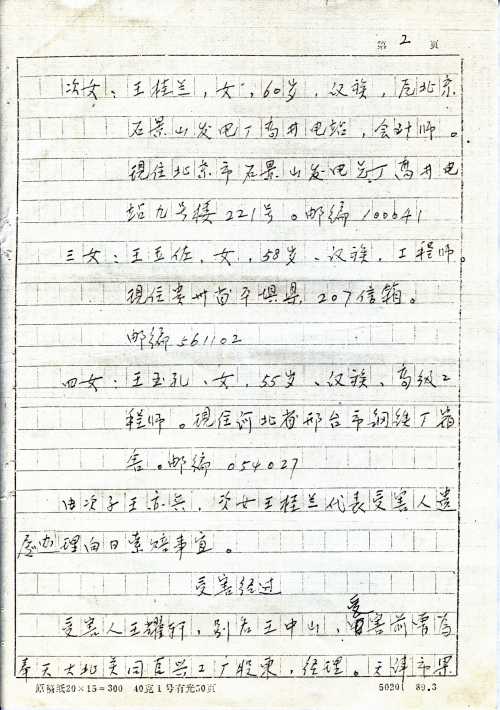 第 2 页
次女：王桂兰，女，60岁，汉族，原北京
石景山发电厂高井电站，会计师。
现住北京市石景山发电总厂高井电
站九号楼221号。邮编100041
三女：王玉佐，女，58岁、汉族，工程师。
现住贵州省平坝县，207信箱。
邮编561102
四女：王玉孔、女，55岁、汉族、高级工
程师。现住河北省邢台市钢铁厂宿
舍。邮编 054027
由次子王亦兵，次女王桂兰代表受害人遗
属办理向日索赔事宜。
受害经过
受害人王耀轩，别名王中山，受害前曾为
奉天大北关同巨兴工厂股东，经理。天津市果
原稿纸20×15=300 40克1号有光50页
50201 89.3